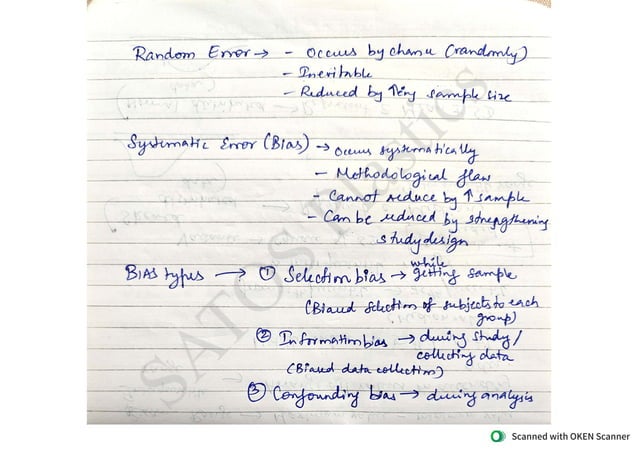 Random Error → - Occurs by chance (randomly)
- Inevitable
- Reduced by ↑ing sample size
Systematic Error (Bias) → Occurs systematically
- Methodological flaw
- Cannot reduce by ↑ sample
- Can be reduced by strengthening
study design
BIAS types → ① Selection bias → while getting sample
(Biased selection of subjects to each
group)
② Information bias → during study/
collecting data
(Biased data collection)
③ Confounding bias → during analysis
Scanned with OKEN Scanner